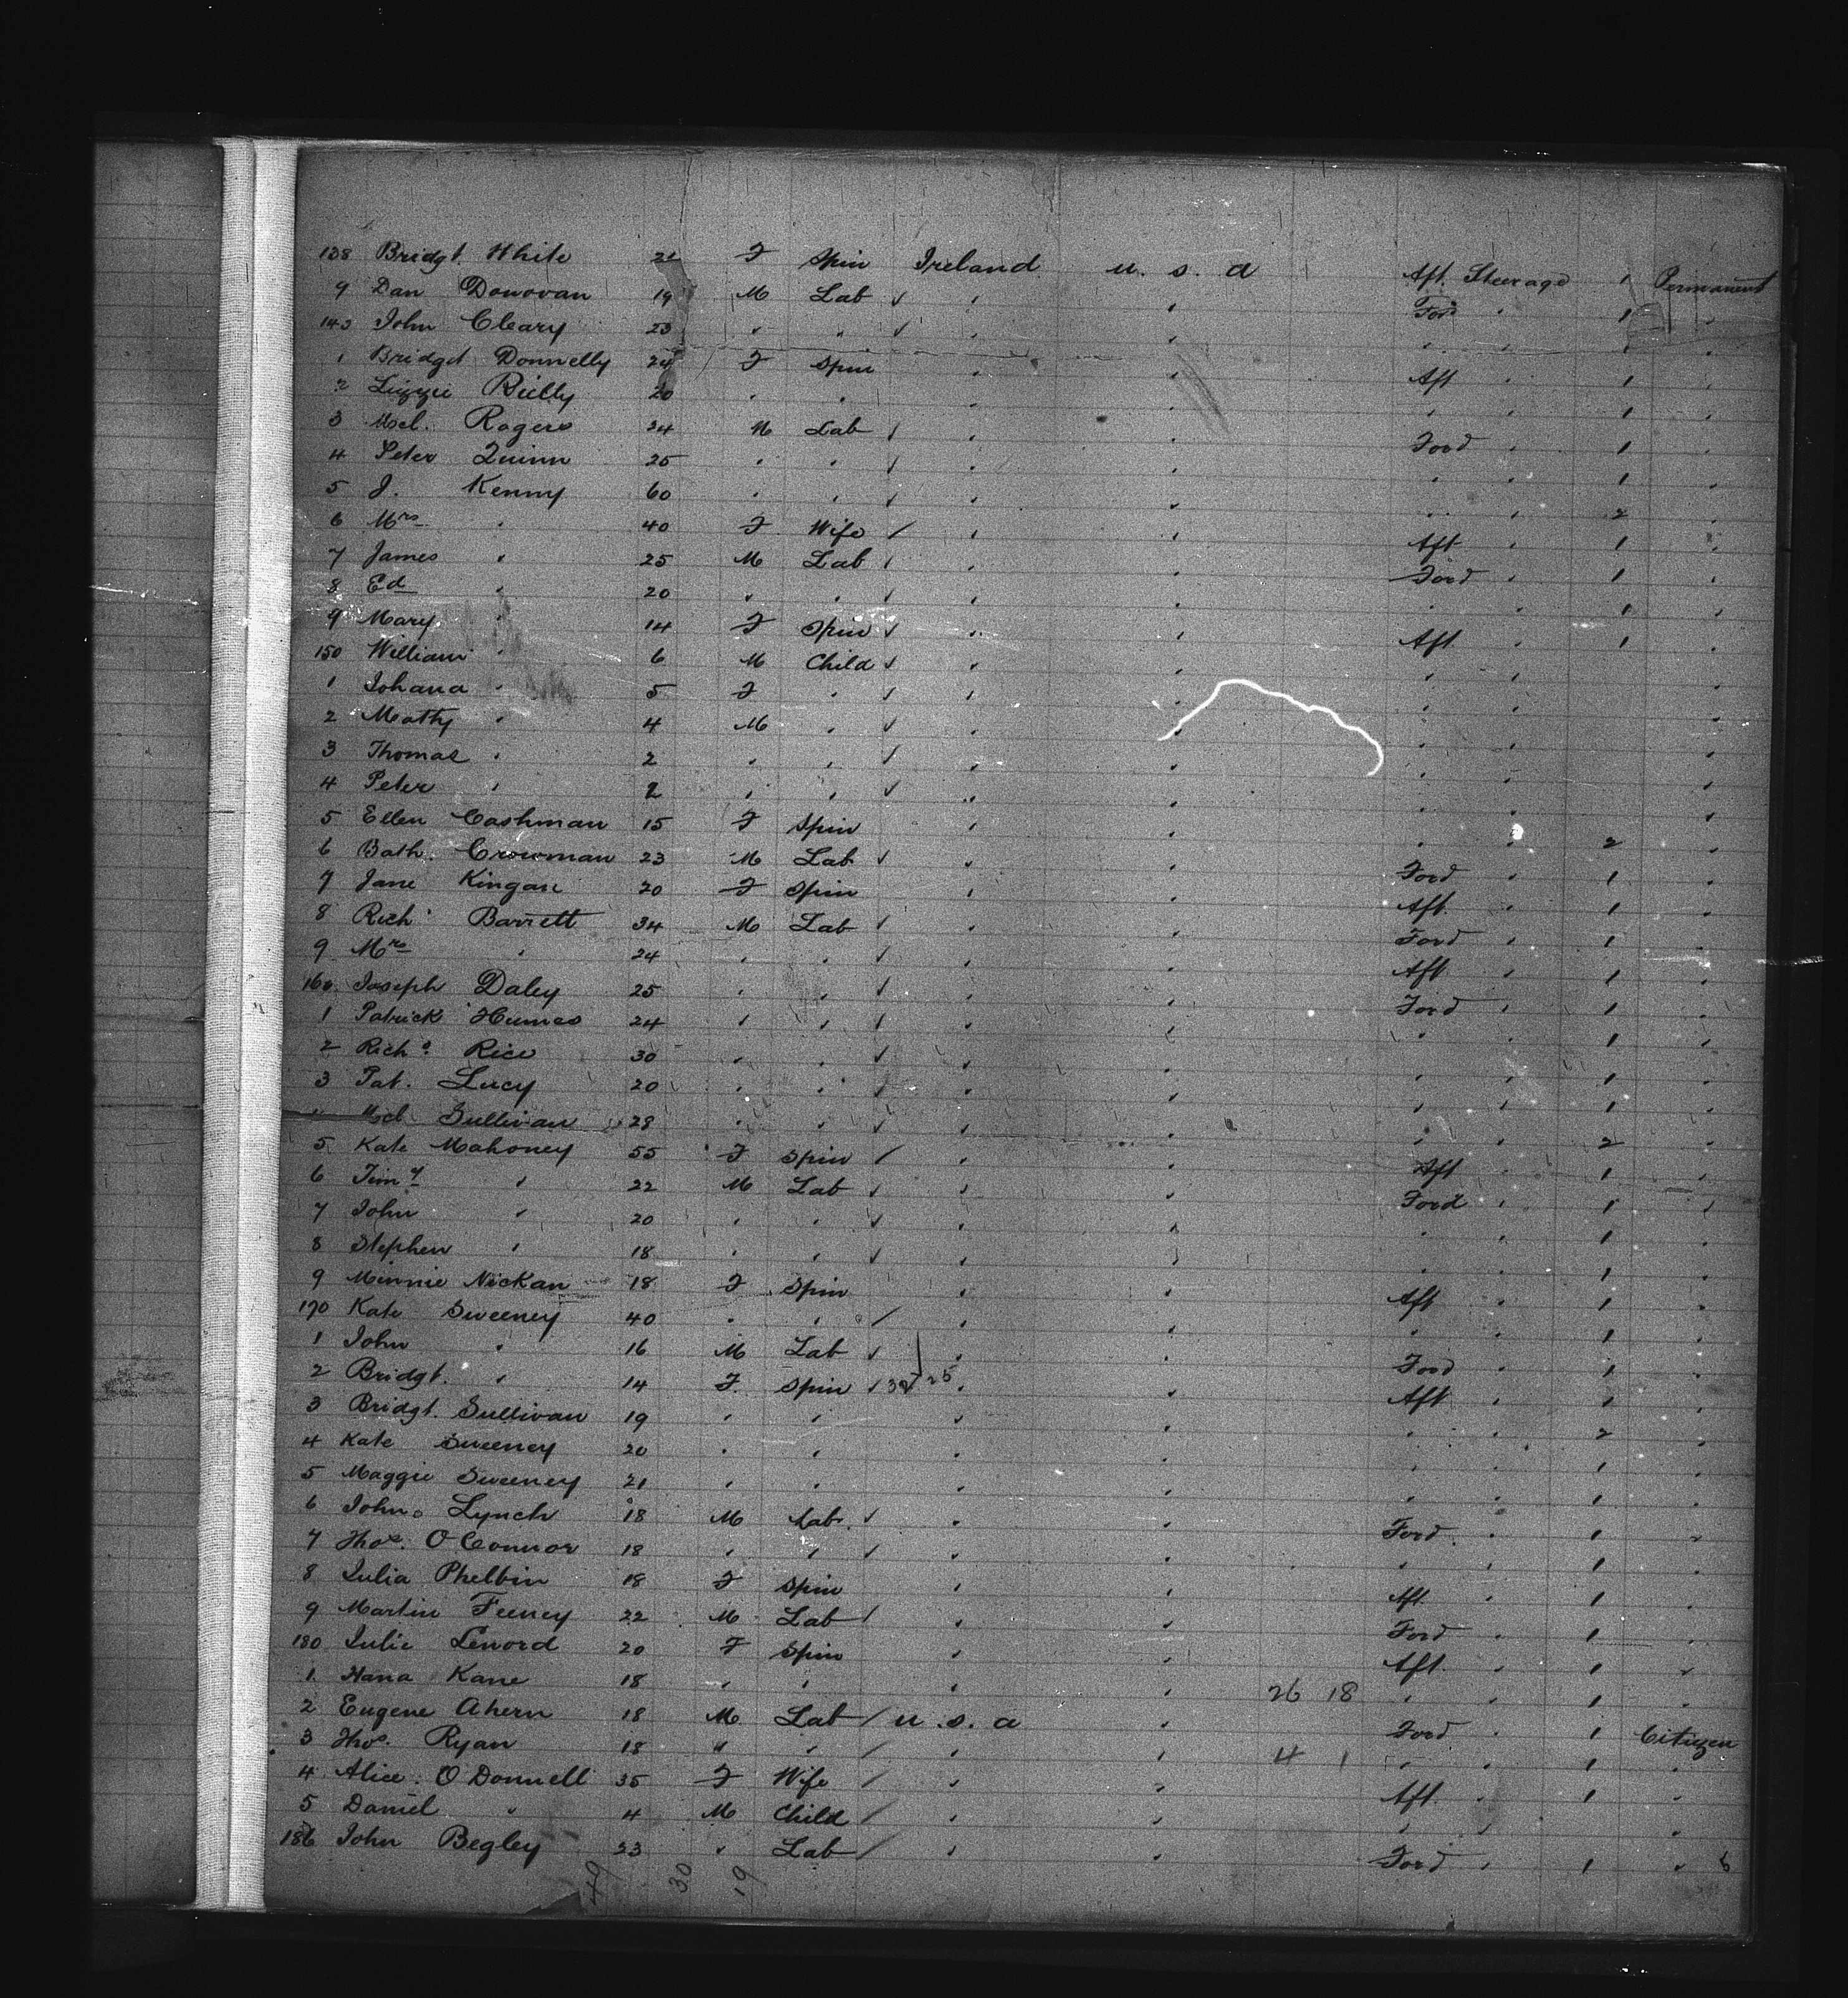 138 Bridgt. White 21 F Spin Ireland U. S. A Aft. Steerage 1 Permanent
9 Dan Donovan 19 M Lab ✓ " " Ford " 1 "
140 John Cleary 23 " " ✓ " " " " 1 "
1 Bridgt Donnelly 24 F Spin " " Aft " 1 "
2 Lizzie Rielly 20 " " " " " " 1 "
3 Mcl. Rogers 24 M Lab ✓ " " Ford " 1 "
4 Peter Quinn 25 " " ✓ " " " " 1 "
5 J. Kenny 60 " " ✓ " " " " 2 "
6 Mrs " 40 F Wife / " " Aft " 1 "
7 James " 25 M Lab ✓ " " Ford " 1 "
8 Ed " 20 " " ✓ " " " " 1 "
9 Mary " 14 F Spin ✓ " " Aft " 1 "
150 William " 6 M Child ✓ " " " " "
1 Johana " 5 F " ✓ " " " " "
2 Matty " 4 M " ✓ " " " " "
3 Thomas " 2 " " ✓ " " " " "
4 Peter " 2 " " ✓ " " " " "
5 Ellen Cashman 15 F Spin " " " " 2 "
6 Bath. Crowman 23 M Lab ✓ " " Ford " 1 "
7 Jane Kingan 20 F Spin " " Aft. " 1 "
8 Rich Barrett 34 M Lab ✓ " " Ford " 1 "
9 Mrs " 24 " " ✓ " " Aft " 1 "
160 Joseph Daley 25 " " ✓ " " Ford " 1 "
1 Patrick Humes 24 " " ✓ " " " " 1 "
2 Richd. Rice 30 " " ✓ " " " " 1 "
3 Pat. Lucy 20 " " ✓ " " " " 1 "
Mcl. Sullivan 28 " " ✓ " " " " 2 "
5 Kate Mahoney 55 F Spin / " " Aft " 1 "
6 Timy " 22 M Lab ✓ " " Ford " 1 "
7 John " 20 " " ✓ " " " " 1 "
8 Stephen " 18 " " ✓ " " " " 1 "
9 Minnie Nickan 18 F Spin " " Aft " 1 "
170 Kate Sweeney 40 " " / " " " " 1 "
1 John " 16 M Lab ✓ " " Ford " 1 "
2 Bridgt. " 14 F. Spin ✓ 25 " " Aft " 1 "
3 Bridgt. Sullivan 19 " " " " " " 2 "
4 Kate Sweeney 20 " " " " " " 1 "
5 Maggie Sweeney 21 " " " " " " 1 "
6 John Lynch 18 M Lab. ✓ " " Ford. " 1 "
7 Thos. O'Connor 18 " " ✓ " " " " 1 "
8 Julia Phelbin 18 F Spin " " Aft. " 1 "
9 Martin Feeney 22 M Lab / " " Ford " 1 "
180 Julie Lenord 20 F Spin " " Aft. " 1 "
1 Hana Kane 18 " " " " 26 18 " " 1 "
2 Eugene Ahern 18 M Lab / U. S. A " Ford " 1 Citizen
3 Thos. Ryan 18 " " / " " 4 1 " " 1 "
4 Alice O'Donnell 35 F Wife / " " Aft. " 1 "
5 Daniel " 4 M Child / " " " " "
186 John Begley 23 " Lab / " " Ford " 1 " 5
49 30 19